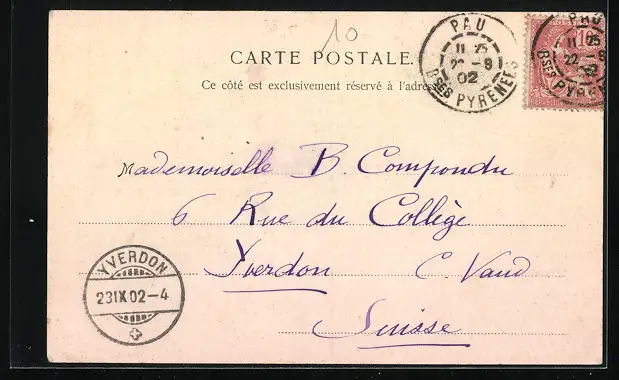 10
CARTE POSTALE.
Ce côté est exclusivement réservé à l'adresse
PAU
11 25
22 -9
02
BSES PYRENEES
PAU
11 25
22 -9
02
BSES PYRE
Mademoiselle B. Compondu
6 Rue du Collège
Yverdon C. Vaud
Suisse
YVERDON
23IX02-4